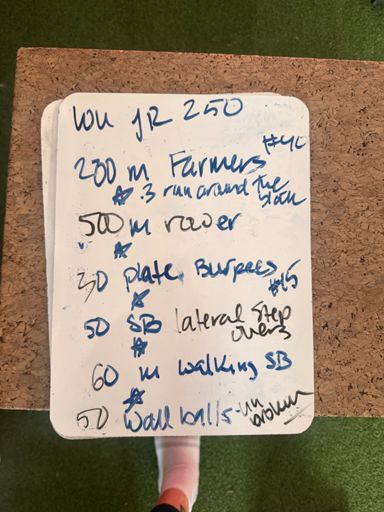 WU JR 250
200 m Farmers #40
☆ .3 run around the block
500 m rower
☆
30 plate Burpees #45
☆
50 SB lateral step overs
☆
60 m walking SB
☆
50 Wall balls - un broken